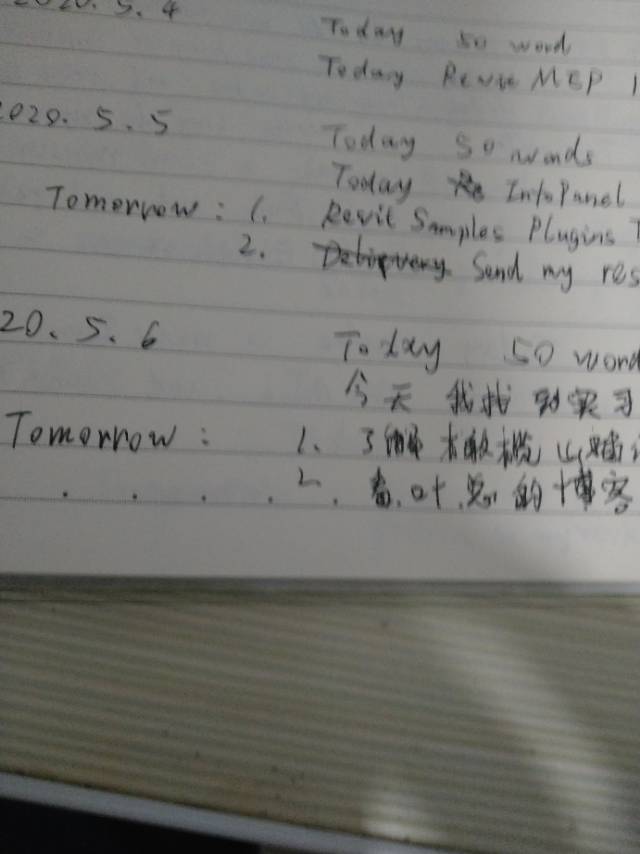 2020. 5. 4
Today 50 word
Today Revit MEP
2020. 5. 5
Today 50 words
Today InfoPanel
Tomorrow: 1. Revit Samples Plugins
2. Send my res
20. 5. 6
Today 50 word
今天 我找到实习
Tomorrow: 1. 了解
2. 看 的博客